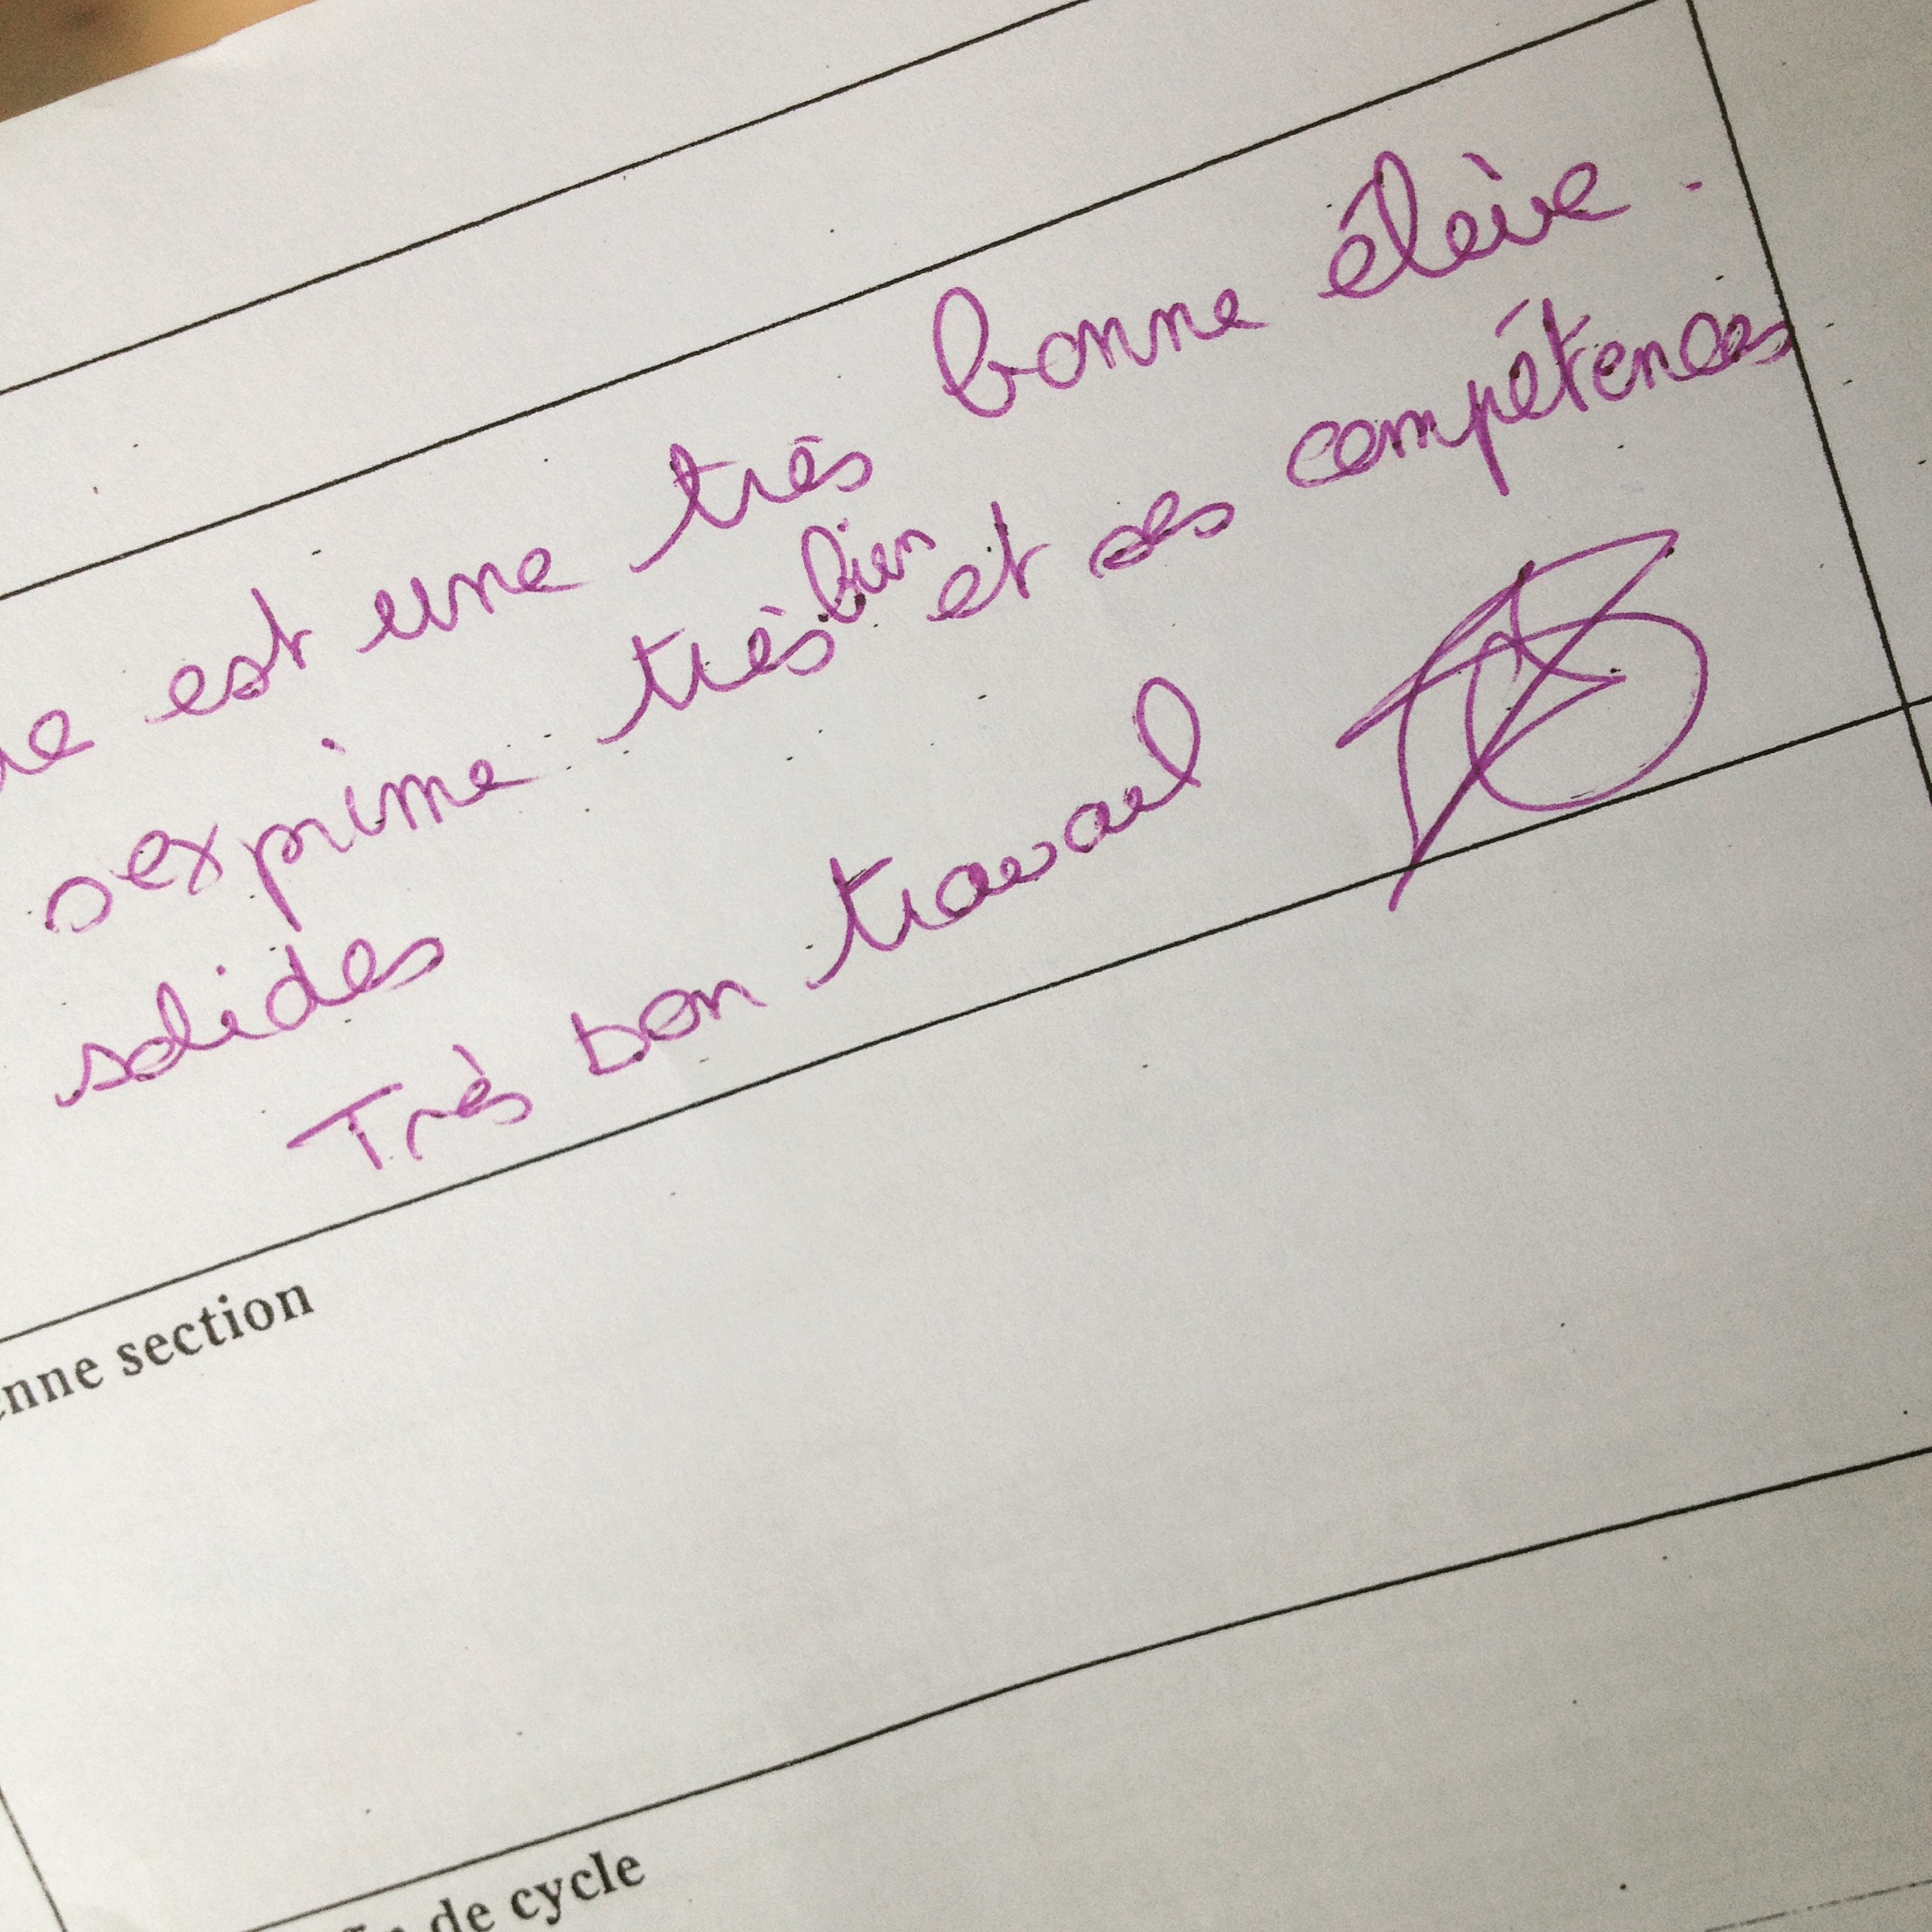 est une très bonne élève.
s'exprime très bien et ses compétences
solides
Très bon travail
enne section
de cycle